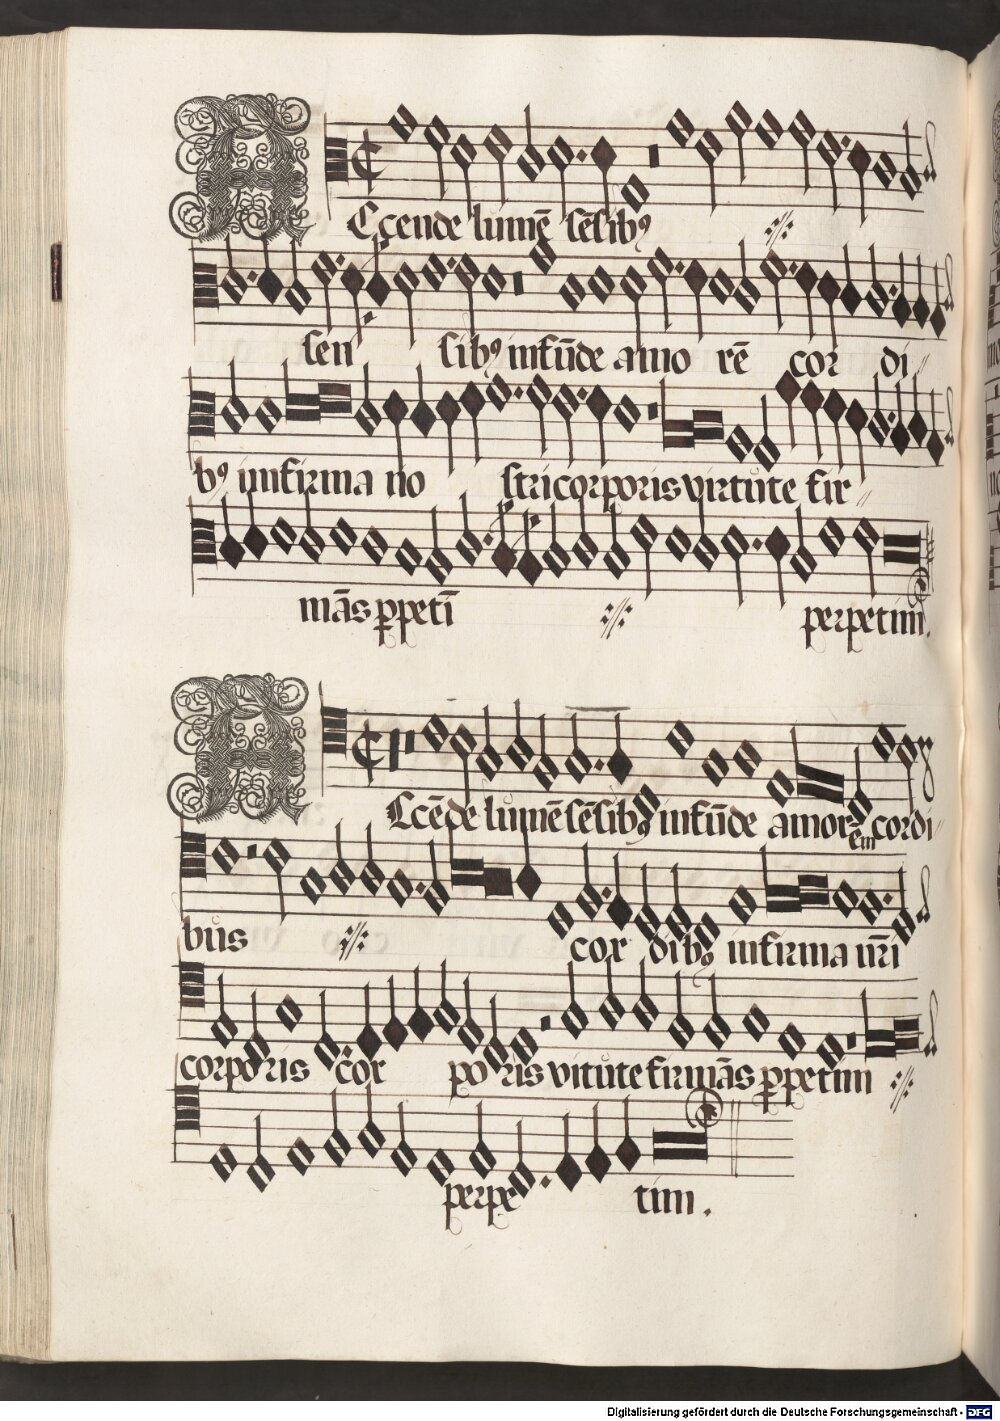 ACcende lumē sēsibꝰ ·//·
sen sibꝰ infūde amo rē cor di //
bꝰ infirma no stri corporis virtute fir //
mās ꝑpetī ·//· perpetim.
ACcēde lumē sēsibꝰ infūde amorem cordi //
bus ·//· cor dibꝰ infirma nr̄i
corporis cor poris vitute firmās ꝑpetim ·//·
perpe tim .
Digitalisierung gefördert durch die Deutsche Forschungsgemeinschaft - DFG